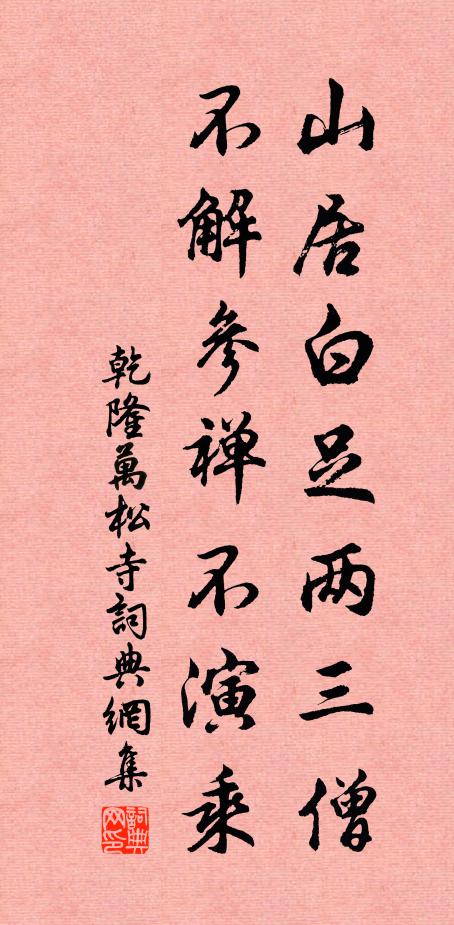 山居白足两三僧
不解參禅不演乘
乾隆萬松寺詞典網集
詞典
网印